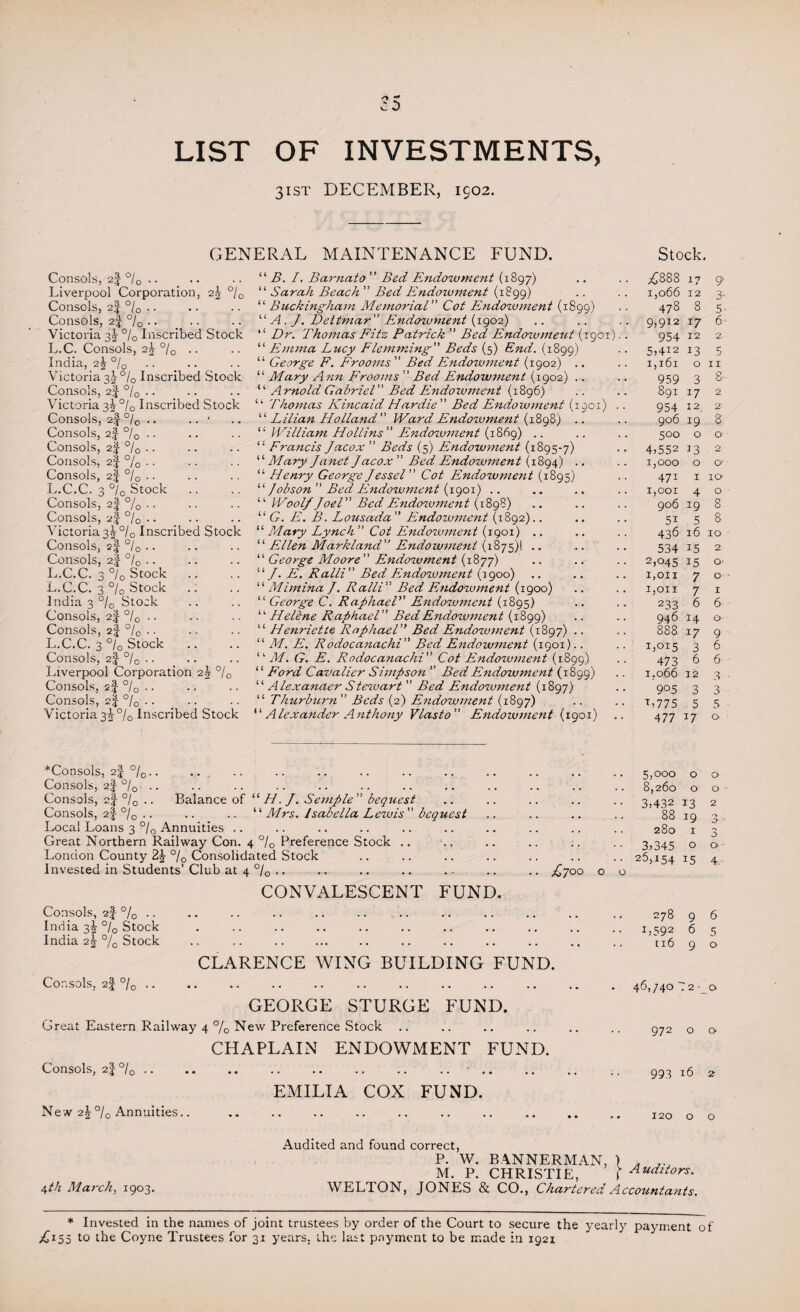 35
LIST OF INVESTMENTS,
31ST DECEMBER, 1902.
GENERAL MAINTENANCE FUND. Stock.
Consols, 2¾ % .. .. .. "B. I. Barnato" Bed Endowment (1897) .. .. £888 17 9
Liverpool Corporation, 2½ % "Sarah Beach" Bed Endowment (1899) .. .. 1,066 12 3
Consols, 2¾ % .. .. .. "Buckingham Memorial" Cot Endowment (1899) .. 478 8 5
Consols, 2¾ % .. .. .. "A. J. Dettmar" Endowment (1902) .. .. .. 9,912 17 6
Victoria 3½ % Inscribed Stock "Dr. Thomas Fitz Patrick" Bed Endowment (1901) .. 954 12 2
L.C. Consols, 2½ % .. .. "Emma Lucy Flemming" Beds (5) End. (1899) .. 5,412 13 5
India, 2½ % .. .. .. "George F. Frooms" Bed Endowment (1902) .. .. 1,161 0 11
Victoria 3½ % Inscribed Stock "Mary Ann Frooms" Bed Endowment (1902) .. .. 959 3 8
Consols, 2¾ % .. .. .. "Arnold Gabriel" Bed Endowment (1896) .. .. 891 17 2
Victoria 3½ % Inscribed Stock "Thomas Kincaid Hardie" Bed Endowment (1901) .. 954 12 2
Consols, 2¾ % .. .. .. "Lilian Holland" Ward Endowment (1898) .. .. 906 19 8
Consols, 2¾ % .. .. .. "William Hollins" Endowment (1869) .. .. .. 500 0 0
Consols, 2¾ % .. .. .. "Francis Jacox" Beds (5) Endowment (1895-7) .. 4,552 13 2
Consols, 2¾ % .. .. .. "Mary Janet Jacox" Bed Endowment (1894) .. .. 1,000 0 0
Consols, 2¾ % .. .. .. "Henry George Jessel" Cot Endowment (1895) .. 471 1 10
L.C.C. 3 % Stock .. .. "Jobson" Bed Endowment (1901) .. .. .. .. 1,001 4 0
Consols, 2¾ % .. .. .. "Woolf Joel" Bed Endowment (1898) .. .. .. 906 19 8
Consols, 2¾ % .. .. .. "G. E. B. Lousada" Endowment (1892) .. .. .. 51 5 8
Victoria 3½ % Inscribed Stock "Mary Lynch" Cot Endowment (1901) .. .. .. 436 16 10
Consols, 2¾ % .. .. .. "Ellen Markland" Endowment (1875) .. .. .. 534 15 2
Consols, 2¾ % .. .. .. "George Moore" Endowment (1877) .. .. .. 2,045 15 0
L.C.C. 3 % Stock .. .. "J. E. Ralli" Bed Endowment (1900) .. .. .. 1,011 7 0
L.C.C. 3 % Stock .. .. "Mimina J. Ralli" Bed Endowment (1900) .. .. 1,011 7 1
India 3 % Stock .. .. "George C. Raphael" Endowment (1895) .. .. 233 6 6
Consols, 2¾ % .. .. .. "Helène Raphael" Bed Endowment (1899) .. .. 946 14 0
Consols, 2¾ % .. .. .. "Henriette Raphael" Bed Endowment (1897) .. .. 888 17 9
L.C.C. 3 % Stock .. .. "M. E. Rodocanachi" Bed Endowment (1901) .. .. 1,015 3 6
Consols, 2¾ % .. .. .. "M. G. E. Rodocanachi" Cot Endowment (1899) .. 473 6 6
Liverpool Corporation 2½ % "Ford Cavalier Simpson" Bed Endowment (1899) .. 1,066 12 3
Consols, 2¾ % .. .. .. "Alexander Stewart" Bed Endowment (1897) .. 905 3 3
Consols, 2¾ % .. .. .. "Thurburn" Beds (2) Endowment (1897) .. .. 1,775 5 5
Victoria 3½ % Inscribed Stock "Alexander Anthony Vlasto" Endowment (1901) .. 477 17 0
*Consols, 2¾ % .. .. .. 5,000 0 0
Consols, 2¾ % .. .. .. 8,260 0 0
Consols, 2¾ % .. Balance of "H. J. Semple" bequest .. .. .. 3,432 13 2
Consols, 2¾ % .. .. .. "Mrs. Isabella Lewis" bequest .. .. .. 88 19 3
Local Loans 3 % Annuities .. .. .. 280 1 3
Great Northern Railway Con. 4 % Preference Stock .. .. .. 3,345 0 0
London County 2½ % Consolidated Stock .. .. .. 26,154 15 4
Invested in Students' Club at 4 % .. .. .. £700 0 0
CONVALESCENT FUND.
Consols, 2¾ % .. .. .. 278 9 6
India 3½ % Stock .. .. .. 1,592 6 5
India 2½ % Stock .. .. .. 116 9 0
CLARENCE WING BUILDING FUND.
Consols, 2¾ % .. .. .. 46,740 12 0
GEORGE STURGE FUND.
Great Eastern Railway 4 % New Preference Stock .. .. .. 972 0 0
CHAPLAIN ENDOWMENT FUND.
Consols, 2¾ % .. .. .. 993 16 2
EMILIA COX FUND.
New 2½ % Annuities .. .. .. 120 0 0
Audited and found correct,
P. W. BANNERMAN, }
M. P. CHRISTIE, } Auditors.
4th March, 1903. WELTON, JONES & CO., Chartered Accountants.
* Invested in the names of joint trustees by order of the Court to secure the yearly payment of
£155 to the Coyne Trustees for 31 years, the last payment to be made in 1921